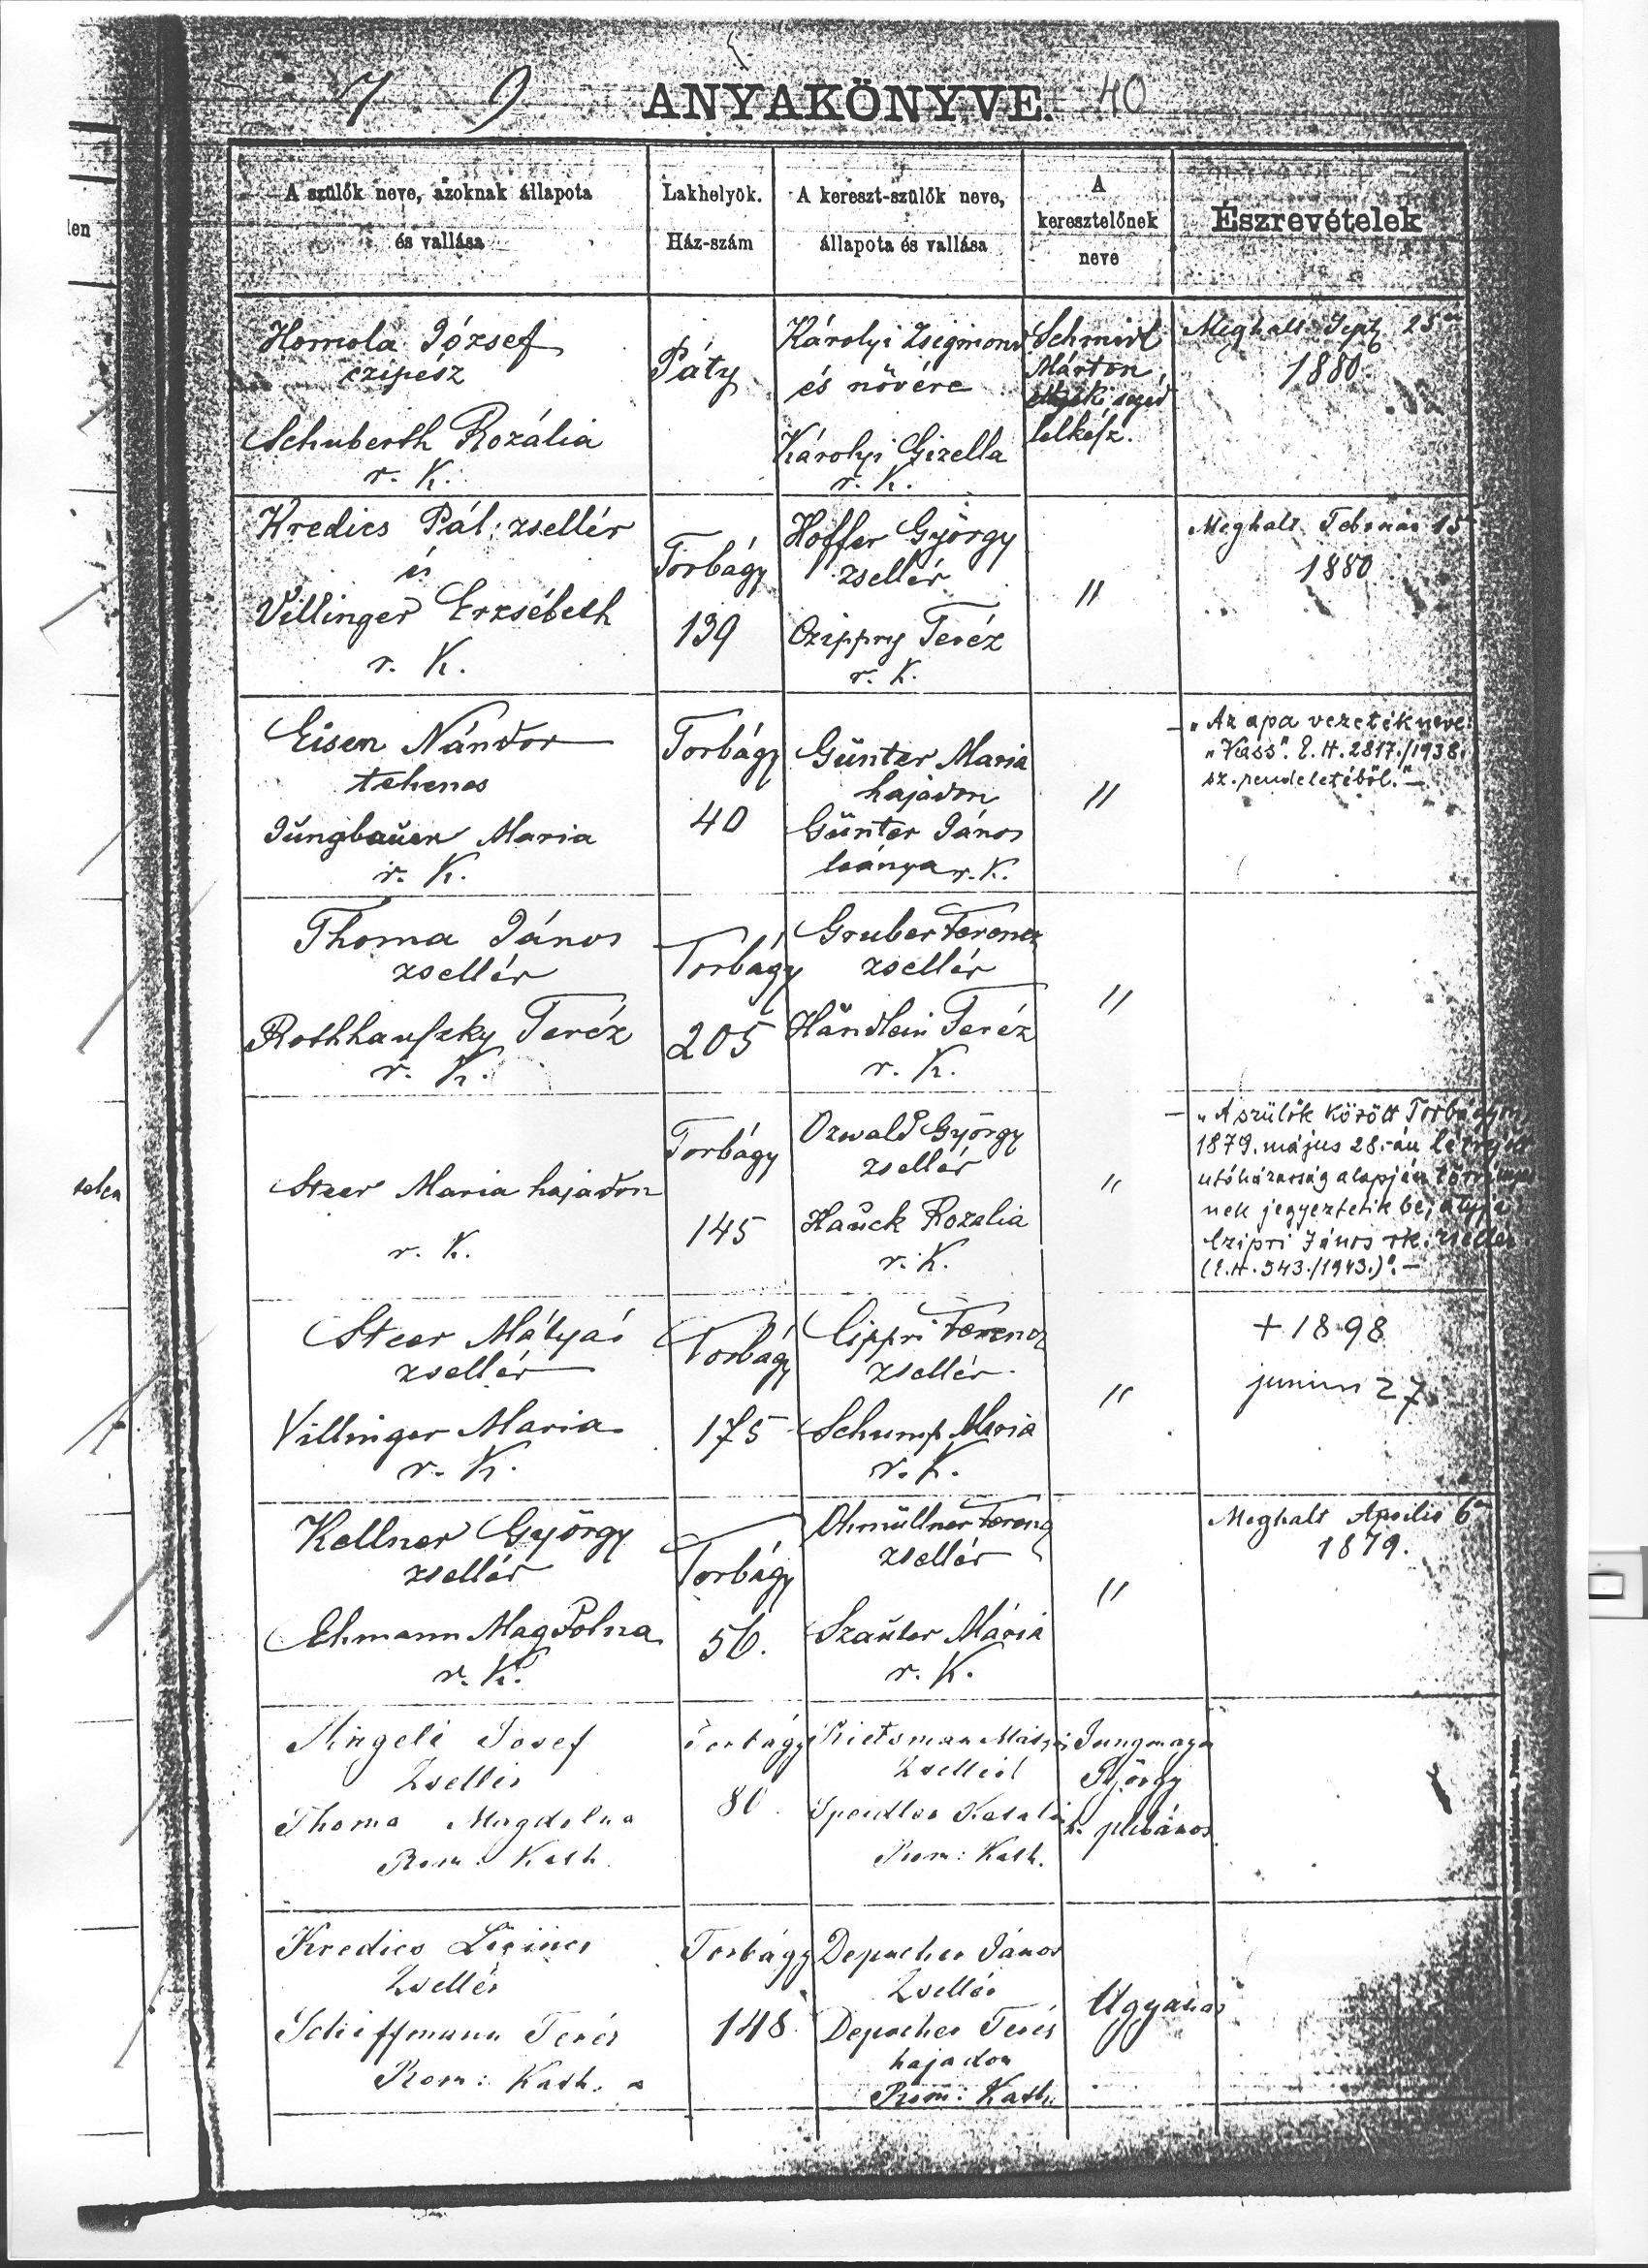 7 9 ANYAKÖNYVE. 40
A szülők neve, azoknak állapota
és vallása
Lakhelyök.
Ház-szám
A kereszt-szülők neve,
állapota és vallása
A
keresztelőnek
neve
Észrevételek
Homola József
czipész
Schuberth Rozália
r. K.
Páty
Károlyi Zsigmond
és növére
Károlyi Gizella
r. K.
Schmidt
Márton
segéd
lelkész.
Meghalt Sept 25
1880.
Kredics Pál zsellér
és
Villinger Erzsébeth
r. K.
Torbágy
139
Hoffer György
zsellér
Czippry Teréz
r. K.
"
Meghalt Február 15
1880.
Eisen Nándor
tehenes
Jungbauer Maria
r. K.
Torbágy
40
Günter Maria
hajadon
Günter János
leánya r. K.
"
- „Az apa vezetékneve:
„Vass". E. H. 2817./1938.
sz. rendeletéből." -
Thoma János
zsellér
Rothhauszky Teréz
r. K.
Torbágy
205
Gruber Ferencz
zsellér
Händlein Teréz
r. K.
"
Steer Maria hajadon
r. K.
Torbágy
145
Ozwald György
zsellér
Hauck Rozalia
r. K.
"
- „A szülők között Torbágyon
1879. május 28.-án létrejött
utóházasság alapján törvényes
nek jegyeztetik be, atyja
Czipri János rk. zsellér.
(E. H. 543./1943.)". -
Steer Mátyás
zsellér
Villinger Maria
r. K.
Torbágy
175
Cippri Ferencz
zsellér
Schump Maria
r. K.
"
+ 1898
junius 27
Kellner György
zsellér
Ehmann Magdolna
r. K.
Torbágy
56.
Ohmüllner Ferencz
zsellér
Szauter Mária
r. K.
"
Meghalt Aprilis 6
1879.
Josef
Zsellér
Thoma Magdolna
Rom: Kath.
Torbágy
80.
Rietsman Mátyás
Zsellér
Katalin
Rom: Kath.
Jungmayer
György
h. plébános
Kredics
Zsellér
Schiffmann Teréz
Rom: Kath.
Torbágy
148.
Depacher János
Zsellér
Depacher Teréz
hajadon
Rom: Kath.
Ugyanaz